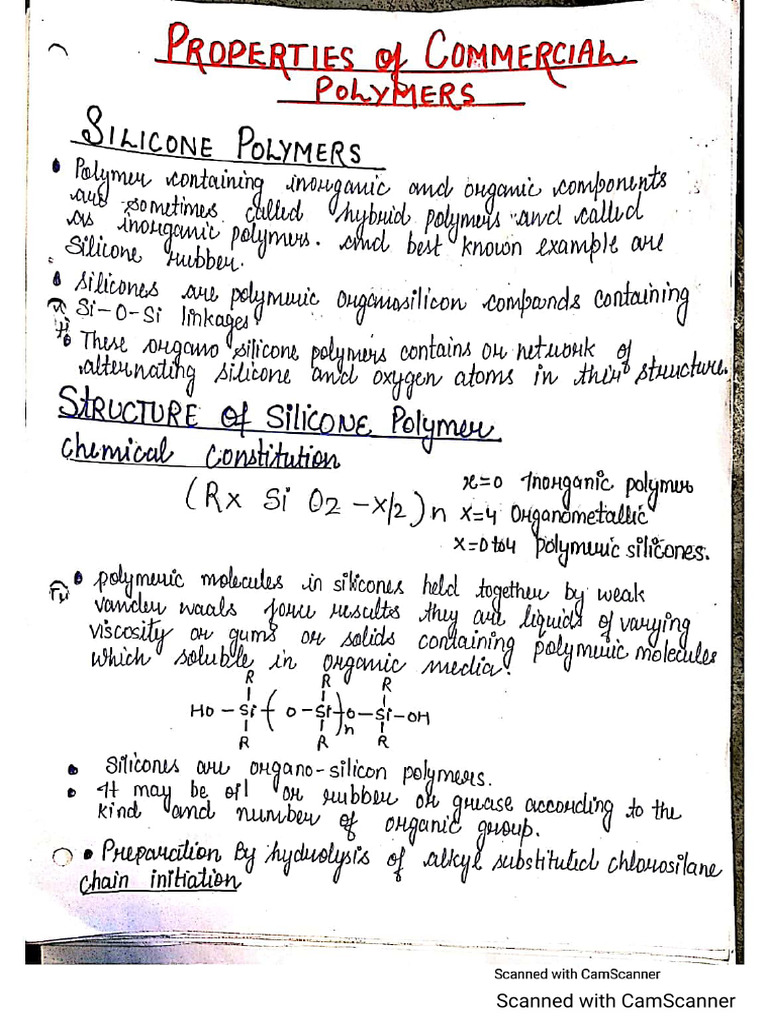 PROPERTIES of COMMERCIAL
POLYMERS
SILICONE POLYMERS
• Polymer containing inorganic and organic components
are sometimes called hybrid polymers and called
as inorganic polymers. and best known example are
Silicone rubber.
• Silicones are polymeric organosilicon compands containing
Si-O-Si linkages.
• These organo silicone polymers contains or network of
alternating silicone and oxygen atoms in their structure.
STRUCTURE of SILICONE Polymer
chemical constitution
(Rx Si O2 -x/2)n
x=0 Inorganic polymer
x=4 Organometallic
x=0 to4 polymeric silicones.
• polymeric molecules in silicones held together by weak
vander waals force results they are liquids of varying
viscosity or gums or solids containing polymeric molecules
which soluble in organic media.
R R R
HO-Si-(O-Si-)nO-Si-OH
R R R
• Silicones are organo-silicon polymers.
• It may be oil or rubber or grease according to the
kind and number of organic group.
• Preparation By hydrolysis of alkyl substituted chlorosilane
chain initiation
Scanned with CamScanner
Scanned with CamScanner